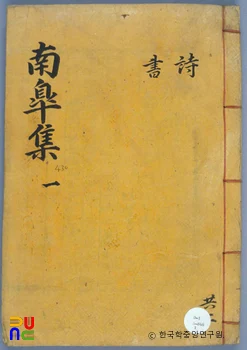 詩
書
南臯集
一
共二
© 한국학중앙연구원